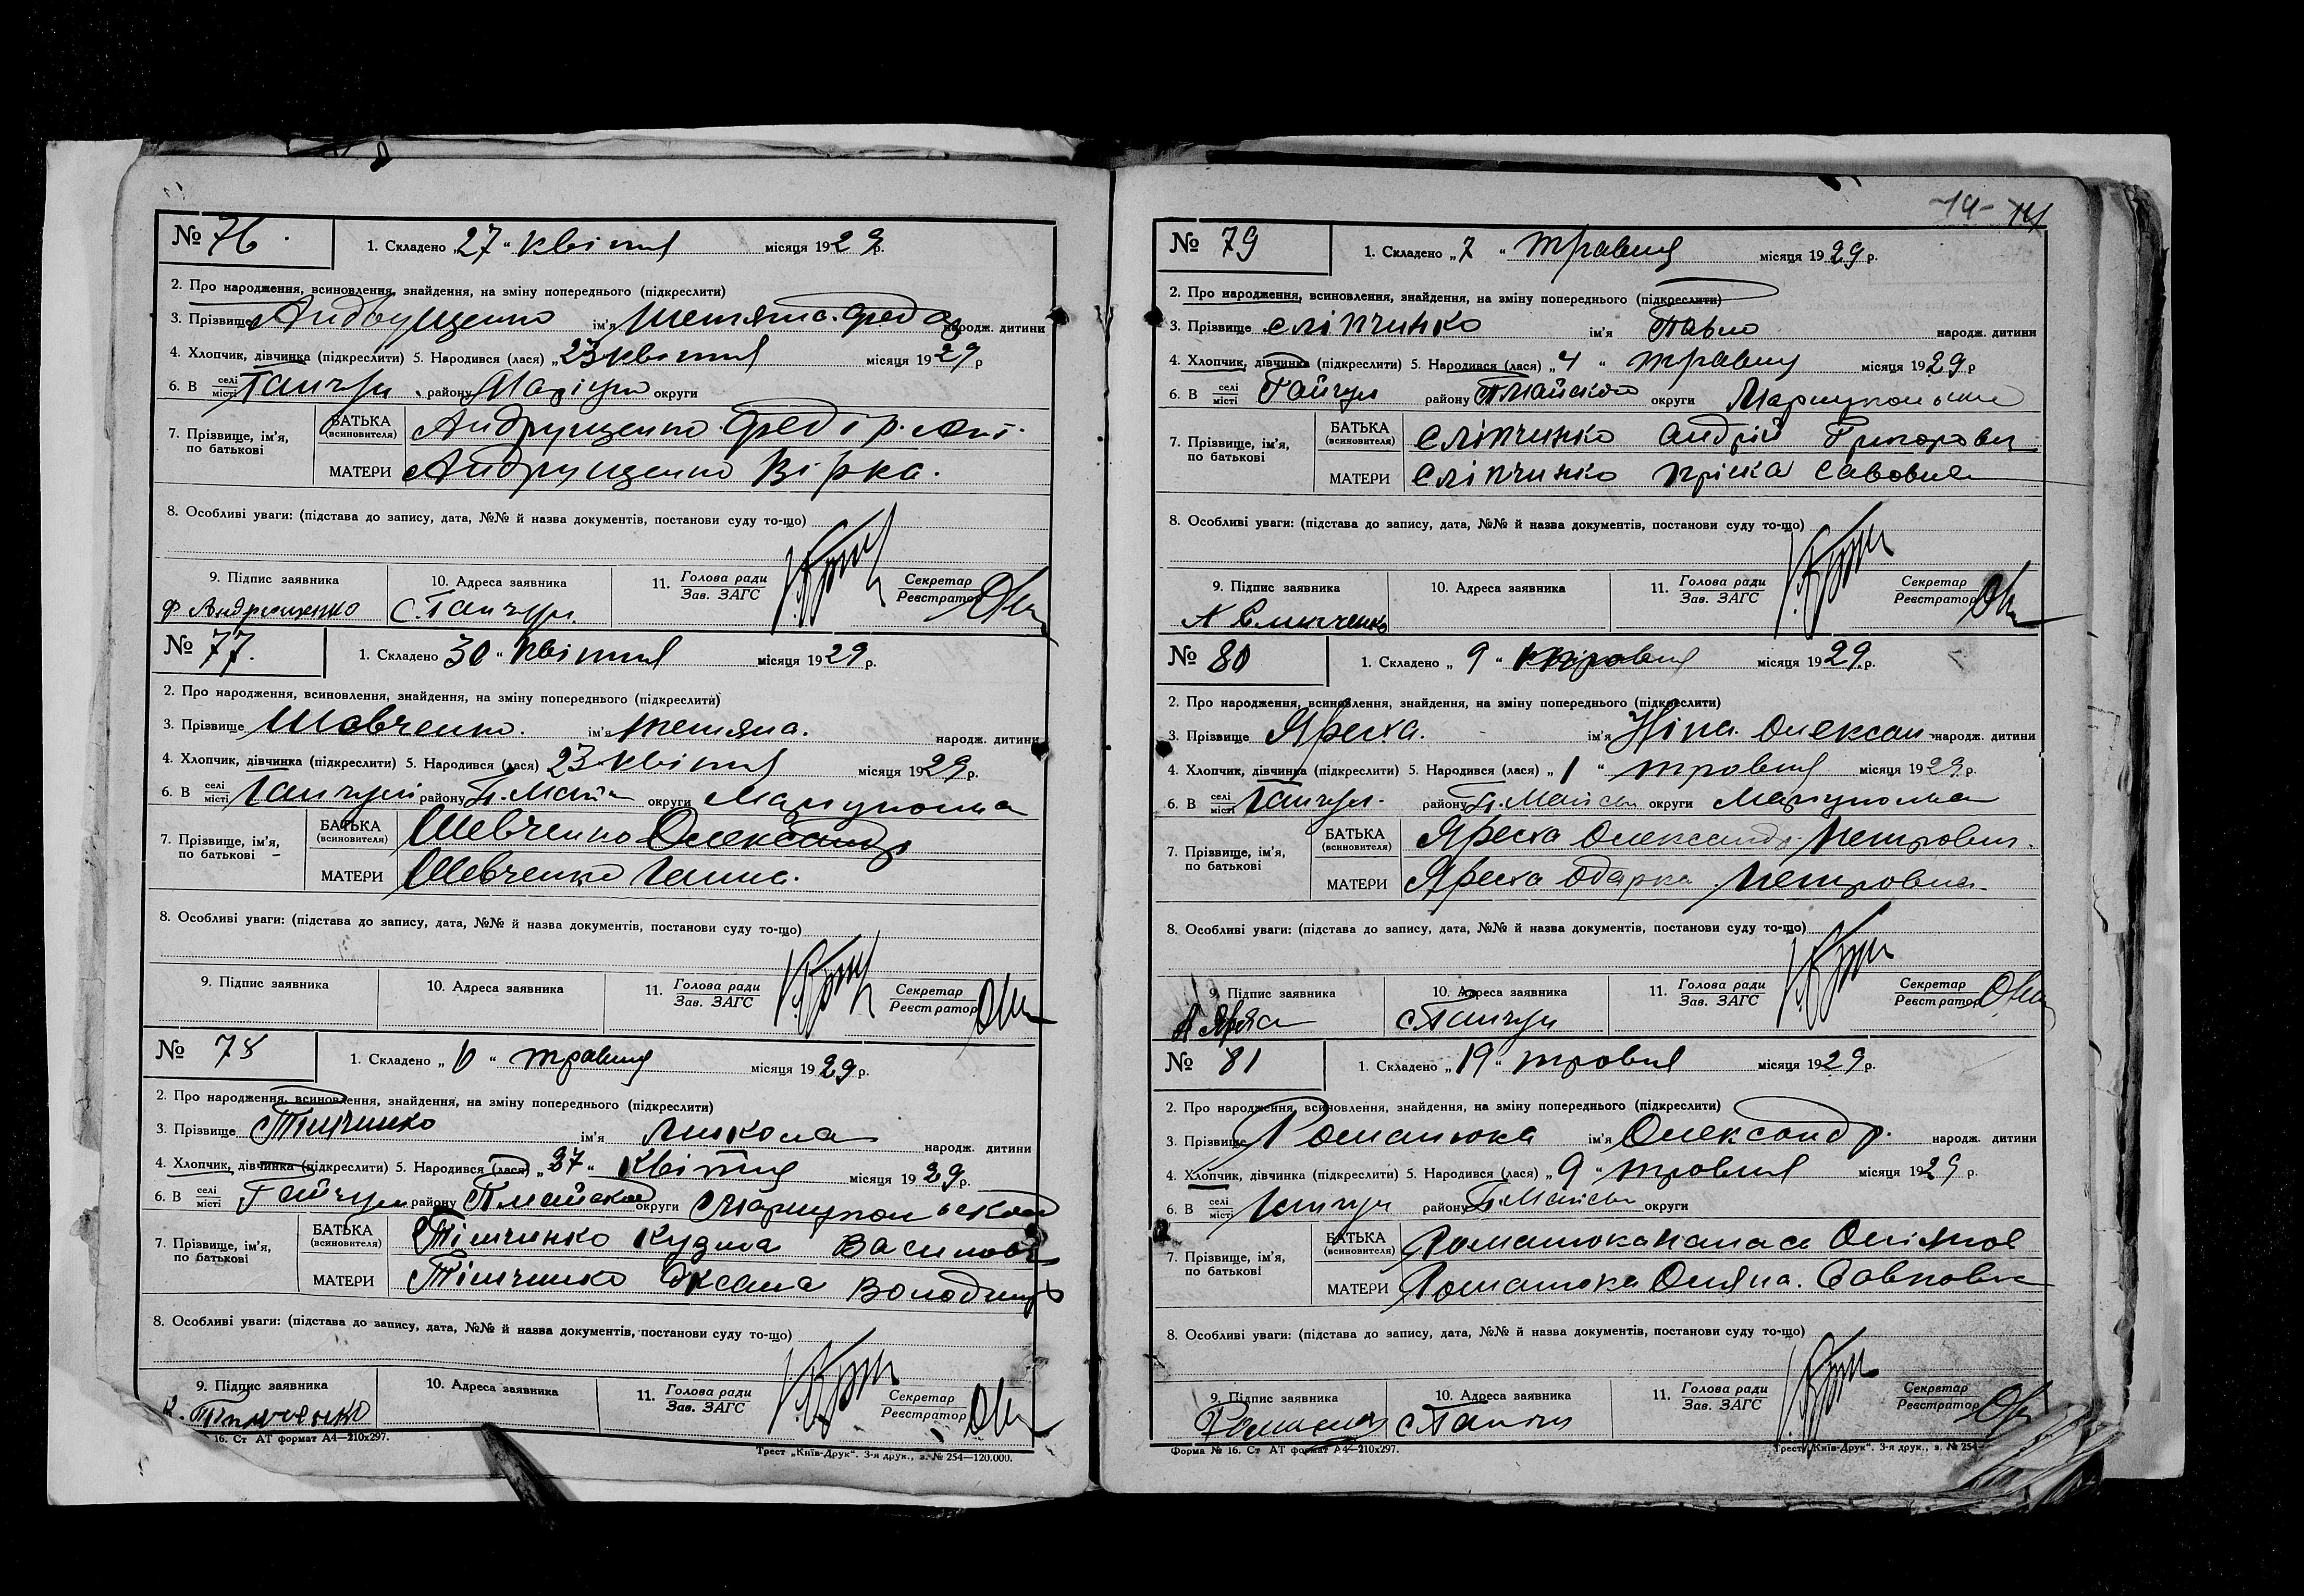 № 76.
1. Складено „27" квітня місяця 1929 р.
2. Про народження, всиновлення, знайдення, на зміну попереднього (підкреслити)
3. Прізвище Андрущенко ім'я Тетяна Федор народж. дитини
4. Хлопчик, дівчинка (підкреслити) 5. Народився (лася) „23 квітня місяця 1929 р
6. В селі місті Гайчур району округи
7. Прізвище, ім'я, по батькові
БАТЬКА (всиновителя) Андрущенко Федір
МАТЕРИ Андрущенко Вірка.
8. Особливі уваги: (підстава до запису, дата, №№ й назва документів, постанови суду то-що)
9. Підпис заявника 10. Адреса заявника 11. Голова ради Зав. ЗАГС Секретар Реєстратор
Ф Андрющенко с. Гайчур.
№ 77.
1. Складено 30 " квітня місяця 1929 р.
2. Про народження, всиновлення, знайдення, на зміну попереднього (підкреслити)
3. Прізвище Шевченко. ім'я Тетяна. народж. дитини
4. Хлопчик, дівчинка (підкреслити) 5. Народився (лася) 23 квітня місяця 1929 р.
6. В селі місті Гайчурі району П. Май округи Маріупольска
7. Прізвище, ім'я, по батькові
БАТЬКА (всиновителя) Шевченко Олександр
МАТЕРИ Шевченко Ганна.
8. Особливі уваги: (підстава до запису, дата, №№ й назва документів, постанови суду то-що)
9. Підпис заявника 10. Адреса заявника 11. Голова ради Зав. ЗАГС Секретар Реєстратор
№ 78
1. Складено „ " травня місяця 1929 р.
2. Про народження, всиновлення, знайдення, на зміну попереднього (підкреслити)
3. Прізвище Тімчинко ім'я Микола народж. дитини
4. Хлопчик, дівчинка (підкреслити) 5. Народився (лася) „27" квітня місяця 1929 р.
6. В селі місті Гайчул району Пмайской округи Мариупольской
7. Прізвище, ім'я, по батькові
БАТЬКА (всиновителя) Тімчинко Кузма Василові
МАТЕРИ Тімчинко Оксана Володимір
8. Особливі уваги: (підстава до запису, дата, №№ й назва документів, постанови суду то-що)
9. Підпис заявника 10. Адреса заявника 11. Голова ради Зав. ЗАГС Секретар Реєстратор
К. Тимченко
16. Ст АТ формат А4—210х297. Трест „Київ-Друк". 3-я друк., з. № 254—120.000.
-14- 14
№ 79
1. Складено „7 " травня місяця 1929 р.
2. Про народження, всиновлення, знайдення, на зміну попереднього (підкреслити)
3. Прізвище Сліпчинко ім'я Павло народж. дитини
4. Хлопчик, дівчинка (підкреслити) 5. Народився (лася) „4 " травня місяця 1929 р
6. В селі місті Гайчул району Пмайского округи
7. Прізвище, ім'я, по батькові
БАТЬКА (всиновителя) Сліпчинко Андрій Григорович
МАТЕРИ Сліпчинко Пріска Савовна
8. Особливі уваги: (підстава до запису, дата, №№ й назва документів, постанови суду то-що)
9. Підпис заявника 10. Адреса заявника 11. Голова ради Зав. ЗАГС Секретар Реєстратор
А Слипченко
№ 80
1. Складено „ 9 " травня місяця 1929 р.
2. Про народження, всиновлення, знайдення, на зміну попереднього (підкреслити)
3. Прізвище Яреска. ім'я Ніна Олексан народж. дитини
4. Хлопчик, дівчинка (підкреслити) 5. Народився (лася) „ 1 " травня місяця 1929 р.
6. В селі місті Гайчул району П. Майськ округи Маріупольска
7. Прізвище, ім'я, по батькові
БАТЬКА (всиновителя) Яреска Олександр Петрович.
МАТЕРИ Яреска Одарка Петровна.
8. Особливі уваги: (підстава до запису, дата, №№ й назва документів, постанови суду то-що)
9. Підпис заявника 10. Адреса заявника 11. Голова ради Зав. ЗАГС Секретар Реєстратор
с. Гайчул
№ 81
1. Складено „19" травня місяця 1929 р.
2. Про народження, всиновлення, знайдення, на зміну попереднього (підкреслити)
3. Прізвище Романюка ім'я Олександр. народж. дитини
4. Хлопчик, дівчинка (підкреслити) 5. Народився (лася) „ 9 " травня місяця 1929 р.
6. В селі місті Гайчул району П. Майськ округи
7. Прізвище, ім'я, по батькові
БАТЬКА (всиновителя) Романюка Панаса
МАТЕРИ Романюка Уляна. Савковна
8. Особливі уваги: (підстава до запису, дата, №№ й назва документів, постанови суду то-що)
9. Підпис заявника 10. Адреса заявника 11. Голова ради Зав. ЗАГС Секретар Реєстратор
Форма № 16. Ст АТ формат А4—210х297. Трест „Київ-Друк". 3-я друк., з. № 254